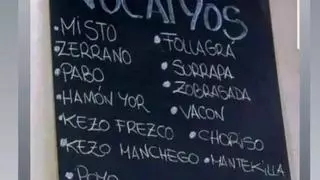 VOCATYOS
• MISTO
• ZERRANO
• PABO
• HAMÓN YOR
• KEZO FREZCO
• KEZO MANCHEGO
• POYO
• FOLLAGRÁ
• SURRAPA
• ZOBRASADA
• VACON
• CHORISO
• MANTEKILLA